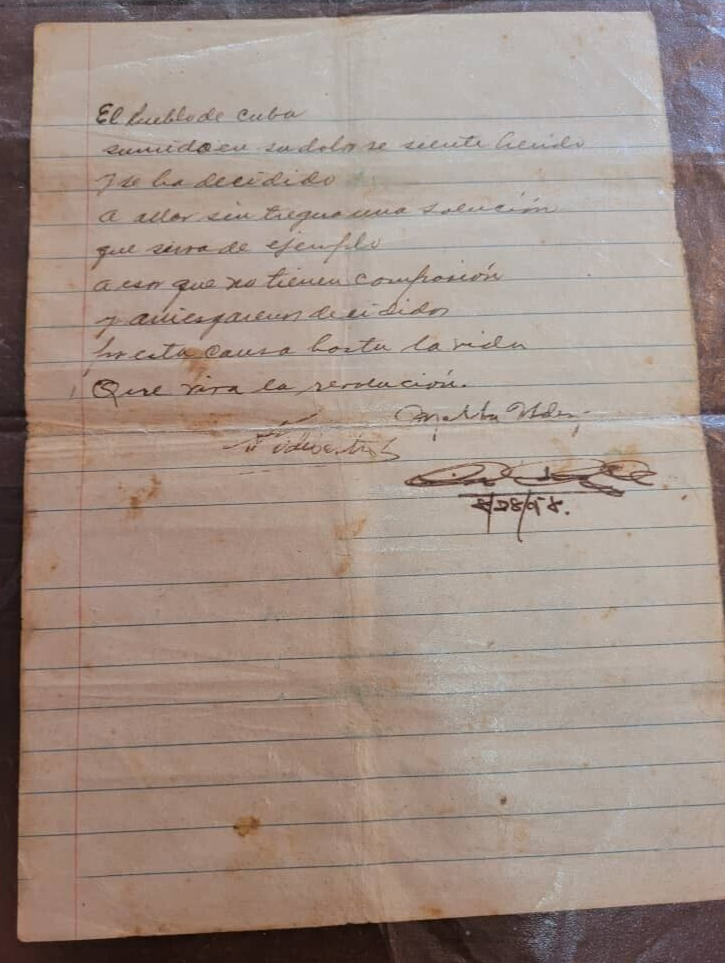 El Pueblo de Cuba
sumido en su dolor se siente herido
y se ha decidido
a allar sin tregua una solución
que sirva de ejemplo
a esos que no tienen compasión
y arriesgaremos decididos
por esta causa hasta la vida
Que viva la revolución.
Fidel Castro
8/28/58.